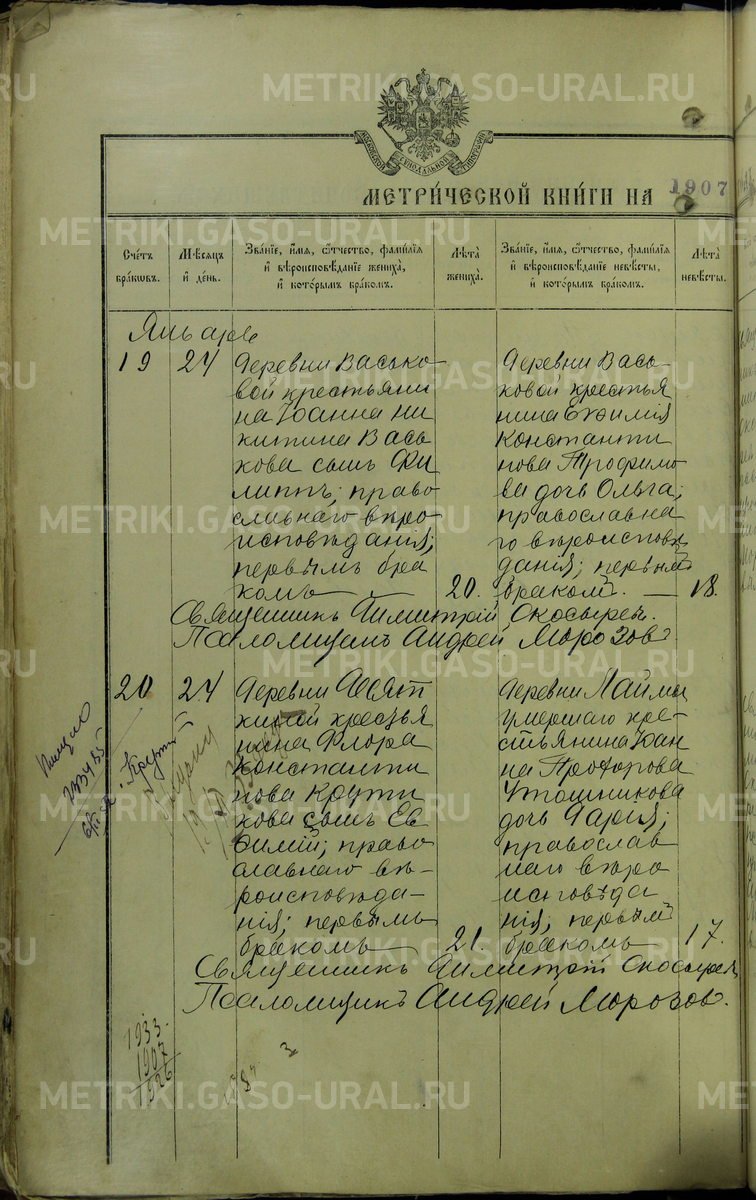 METRIKI.GASO-URAL.RU
МОСКОВСКОЙ СѴНОДАЛЬНОЙ ТИПОГРАФІИ
МЕТРИ́ЧЕСКОЙ КНИ́ГИ НА 1907
Сче́тъ бра́ковъ.
Мѣ́сяцъ и́ де́нь.
Зва́нїе, и́мя, ѻ́тчество, фами́лїя и́ вѣроисповѣ́данїе жениха̀, и́ кото́рымъ бра́комъ.
Лѣ́та жениха̀.
Зва́нїе, и́мя, ѻ́тчество, фами́лїя и́ вѣроисповѣ́данїе невѣ́сты, и́ кото́рымъ бра́комъ.
Лѣ́та невѣ́сты.
Январь
19
24
Деревни Васько
вой крестьяни
на Іоанна Ни
китина Вась
кова сынъ Фи
липпъ; право
славнаго вѣро
исповѣданія;
первымъ бра
комъ
20.
Деревни Вась
ковой крестья
нина Евѳимія
Константи
нова Трофимо
ва дочь Ольга;
православна
го вѣроисповѣ
данія; первымъ
бракомъ.
18.
Священникъ Димитрій Скосыревъ.
Псаломщикъ Андрей Морозов.
20
24
Деревни
киной крестья
нина Флора
Константи
нова Крути
кова сынъ Ев
ѳимій; право
славнаго вѣ-
роисповѣда-
нія; первымъ
бракомъ
21.
Деревни Лаймы
умершаго кре-
стьянина Іоан
на Прохорова
дочь Дарія;
православ
наго вѣро
исповѣда
нія; первымъ
бракомъ
17.
Священникъ Димитрій Скосыревъ
Псаломщикъ Андрей Морозов.
1933-
1907
1926